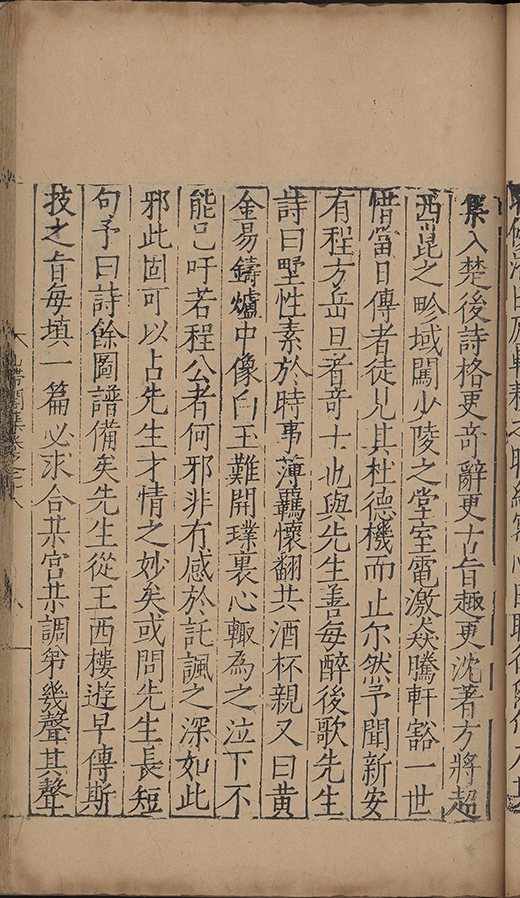 集入楚後詩格更竒辭更古旨趣更沈著方將超
西崑之畛域闖少陵之堂室電激猋騰軒豁一世
惜當日傳者徒見其杜德機而止尔然予聞新安
有程方岳旦者竒士也與先生善每醉後歌先生
詩曰埜性素於時事薄羈懷翻共酒杯親又曰黄
金易鑄爐中像白玉難開璞裏心輙為之泣下不
能已吁若程公者何邪非有感於託諷之深如此
邪此固可以占先生才情之妙矣或問先生長短
句予曰詩餘圖譜備矣先生從王西樓遊早傳斯
技之旨每填一篇必求合某宫某調第幾聲其聲